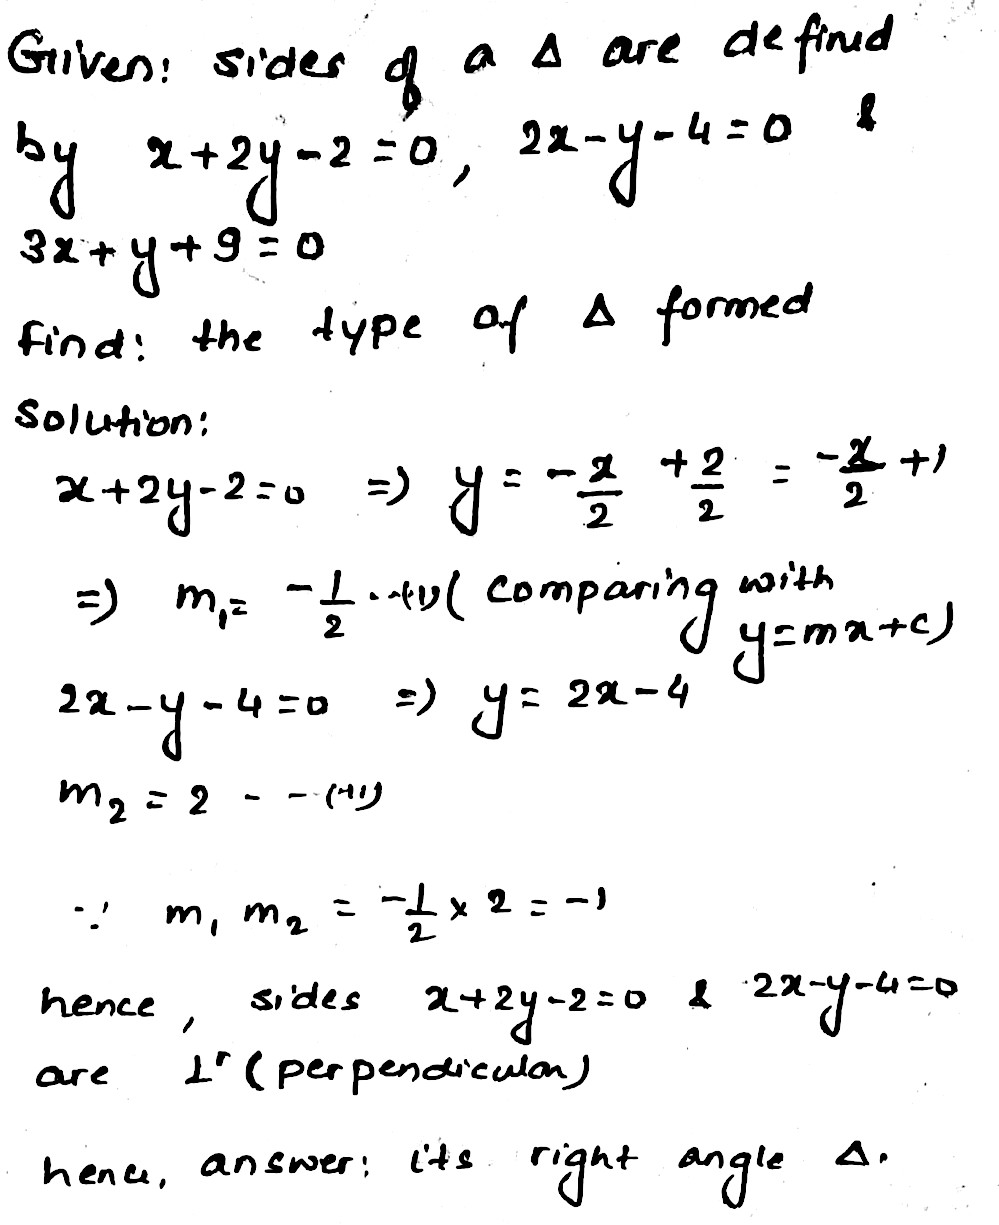 Given: sides of a Δ are defined
by x+2y-2=0, 2x-y-4=0 &
3x+y+9=0
find: the type of Δ formed
Solution:
x+2y-2=0 => y = -x/2 + 2/2 = -x/2 + 1
=> m₁ = -1/2 ---(i) (comparing with
y=mx+c)
2x-y-4=0 => y = 2x-4
m₂ = 2 - - --(ii)
∵ m₁ m₂ = -1/2 × 2 = -1
hence, sides x+2y-2=0 & 2x-y-4=0
are ⊥r (perpendicular)
hence, answer: its right angle Δ.